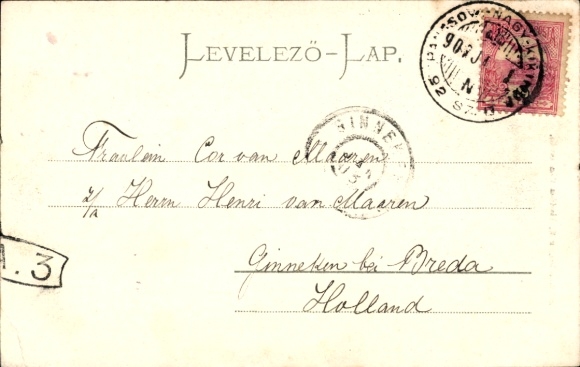 LEVELEZŐ-LAP.
PANCSOVA-NAGY-KIKINDA
25. SZ.
GINNEKEN
Fräulein Cor van Maaren
p/a Herrn Henri van Maaren
Ginneken bei Breda
Holland
. 3